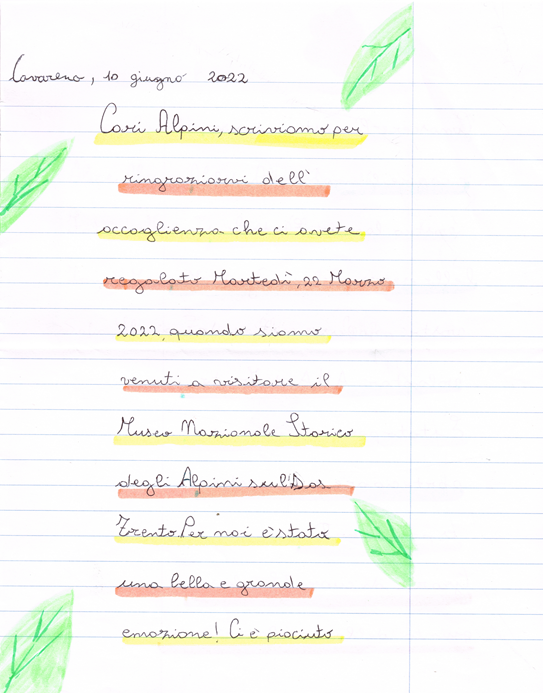 Cavareno, 10 giugno 2022
Cari Alpini, scriviamo per
ringraziarvi dell'
accoglienza che ci avete
regalato Martedì, 22 Marzo
2022, quando siamo
venuti a visitare il
Museo Nazionale Storico
degli Alpini sul Dos
Trento. Per noi è stata
una bella e grande
emozione! Ci è piaciuto